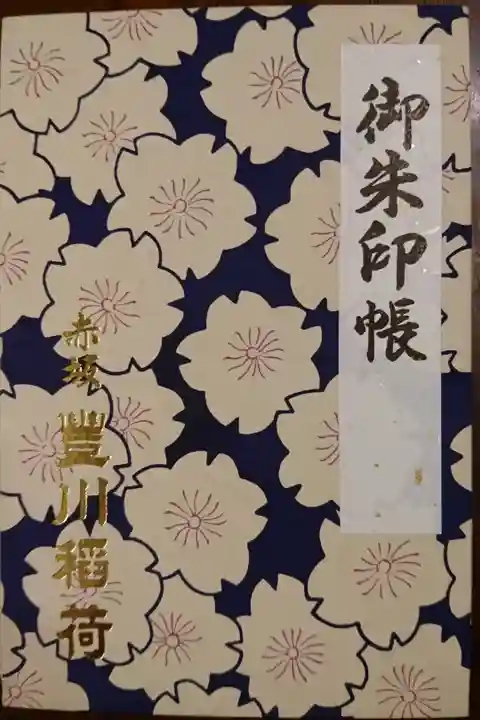 御朱印帳
赤坂
豊川稲荷